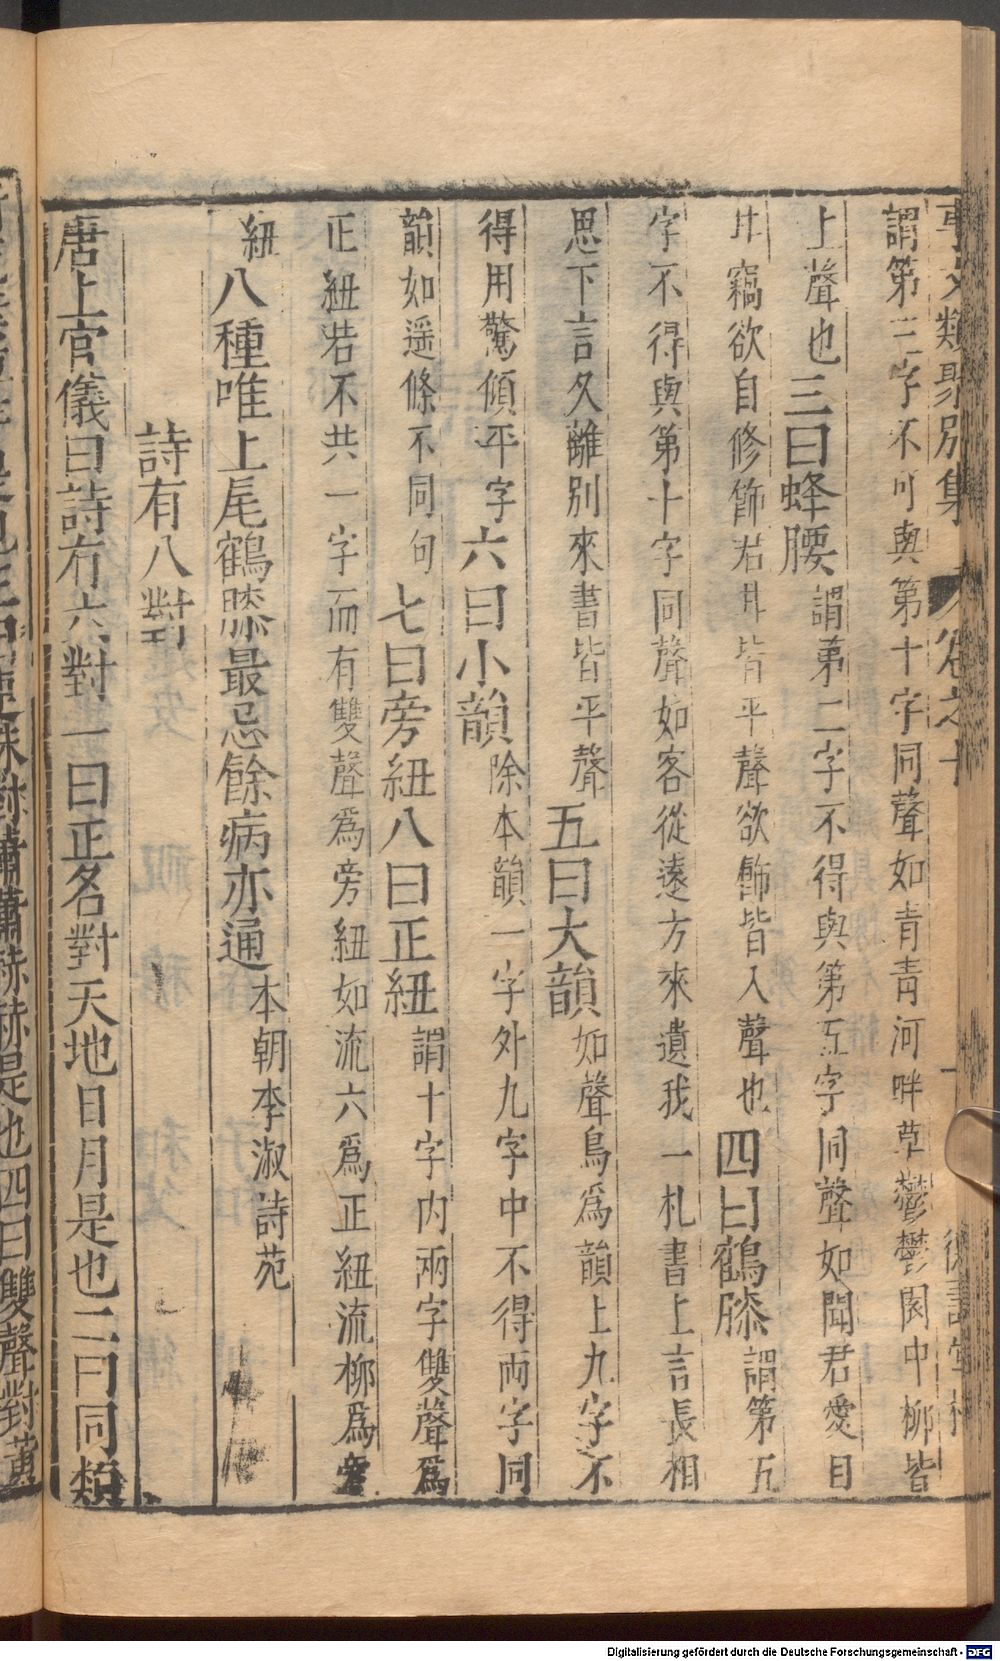 事文類聚別集 卷之十
謂第三字不可與第十字同聲如青青河畔草鬱鬱園中柳皆
上聲也三曰蜂腰謂第二字不得與第五字同聲如聞君愛目
甘竊欲自修飾君甘皆平聲欲飾皆入聲也四曰鶴膝謂第五
字不得與第十字同聲如客從遠方來遺我一札書上言長相
思下言久離別來書皆平聲五曰大韻如聲鳥為韻上九字不
得用驚傾平字六曰小韻除本韻一字外九字中不得兩字同
韻如遥條不同句七曰旁紐八曰正紐謂十字内兩字雙聲為
正紐若不共一字而有雙聲爲旁紐如流六爲正紐流柳爲旁
紐八種唯上尾鶴膝最忌餘病亦通本朝李淑詩苑
詩有八對
唐上官儀曰詩有六對一曰正名對天地日月是也二曰同類
對蕭蕭赫赫是也四曰雙聲對黃
Digitalisierung gefördert durch die Deutsche Forschungsgemeinschaft - DFG